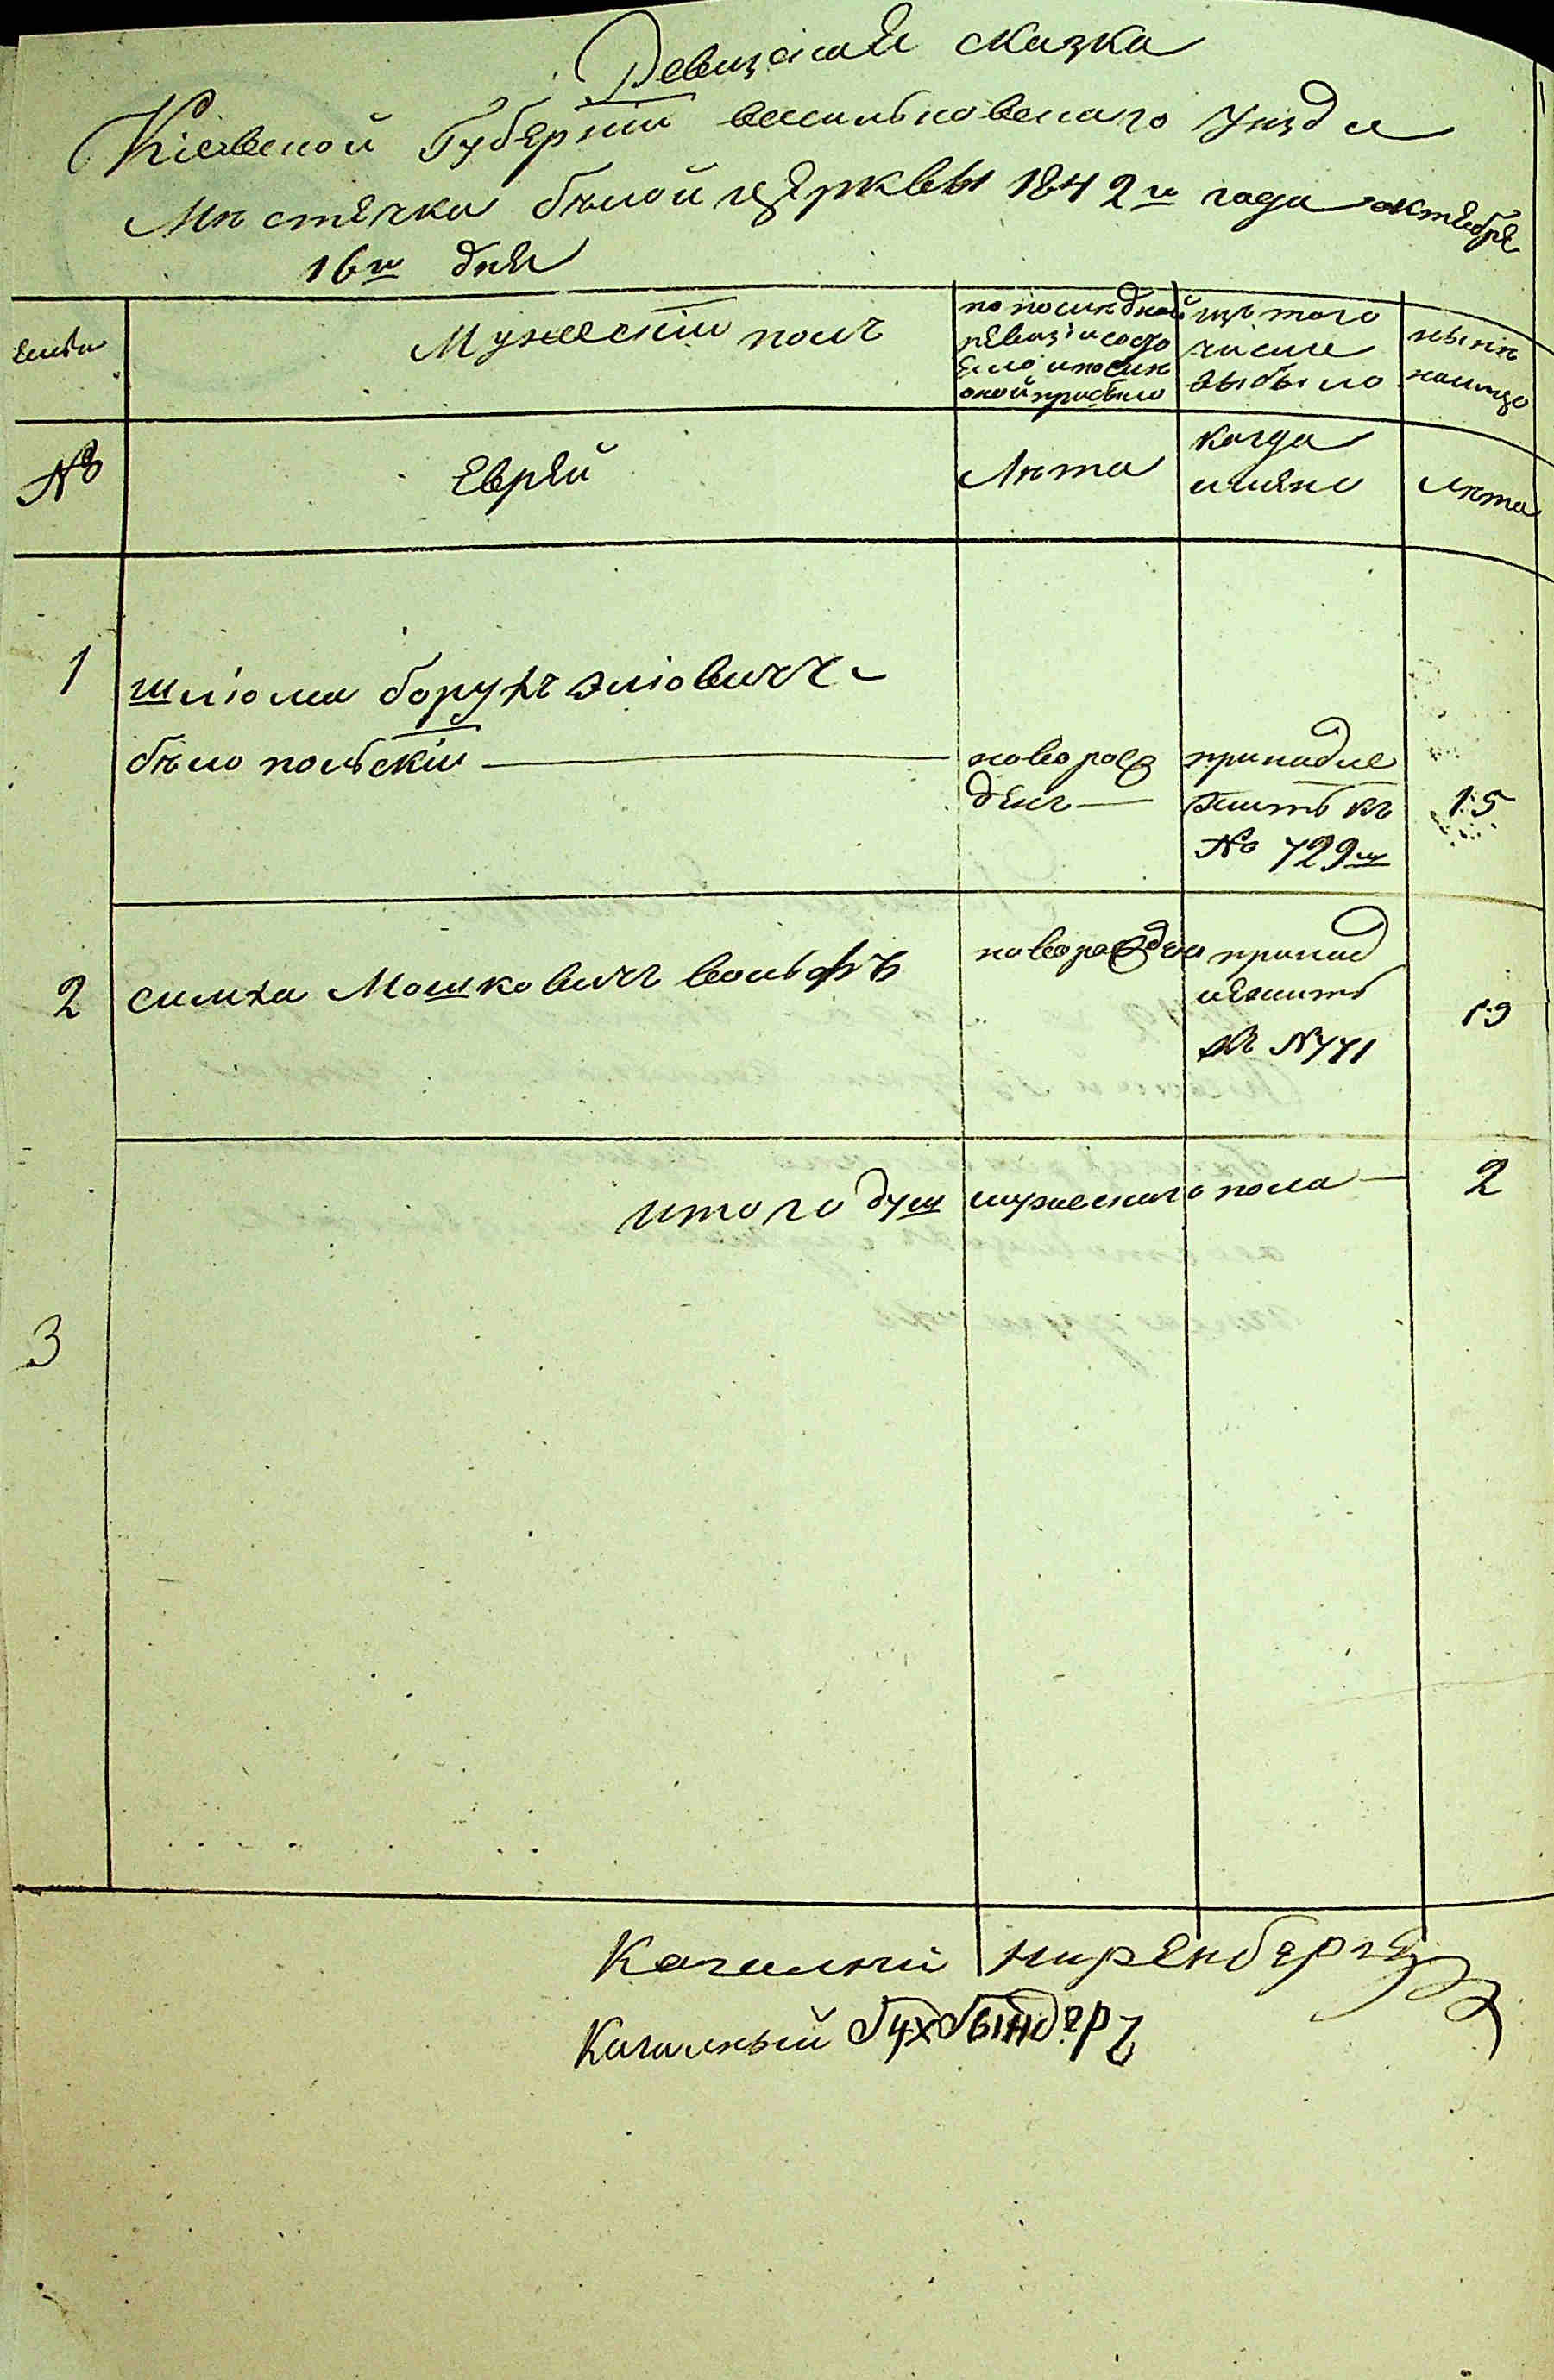 Ревизская сказка
Кіевской Губерніи васильковскаго уѣзда
Мѣстечка бѣлой церквы 1842го года октября
16го дня
Мужескій полъ
по послѣдной
ревизіи состо
яло и послѣ
оной прибыло
изъ того
числа
выбыло
нынѣ
налицо
№
Еврей
Лѣта
когда
имяно
лѣта
1
шліома борухъ эліовичъ
бѣлопольскій
новорож
денъ
принадле
житъ къ
№ 729му
15
2
симха Мошковичъ вольфъ
новорожден
принад
лежитъ
къ № 771
19
итого душ мужескаго пола
2
3
Кагалный Ниренбергъ
Кагалный Бухбындеръ